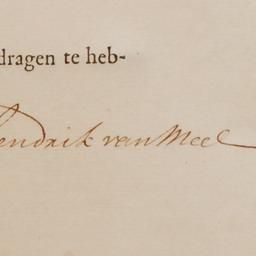 dragen te heb-
Hendrik van Meel